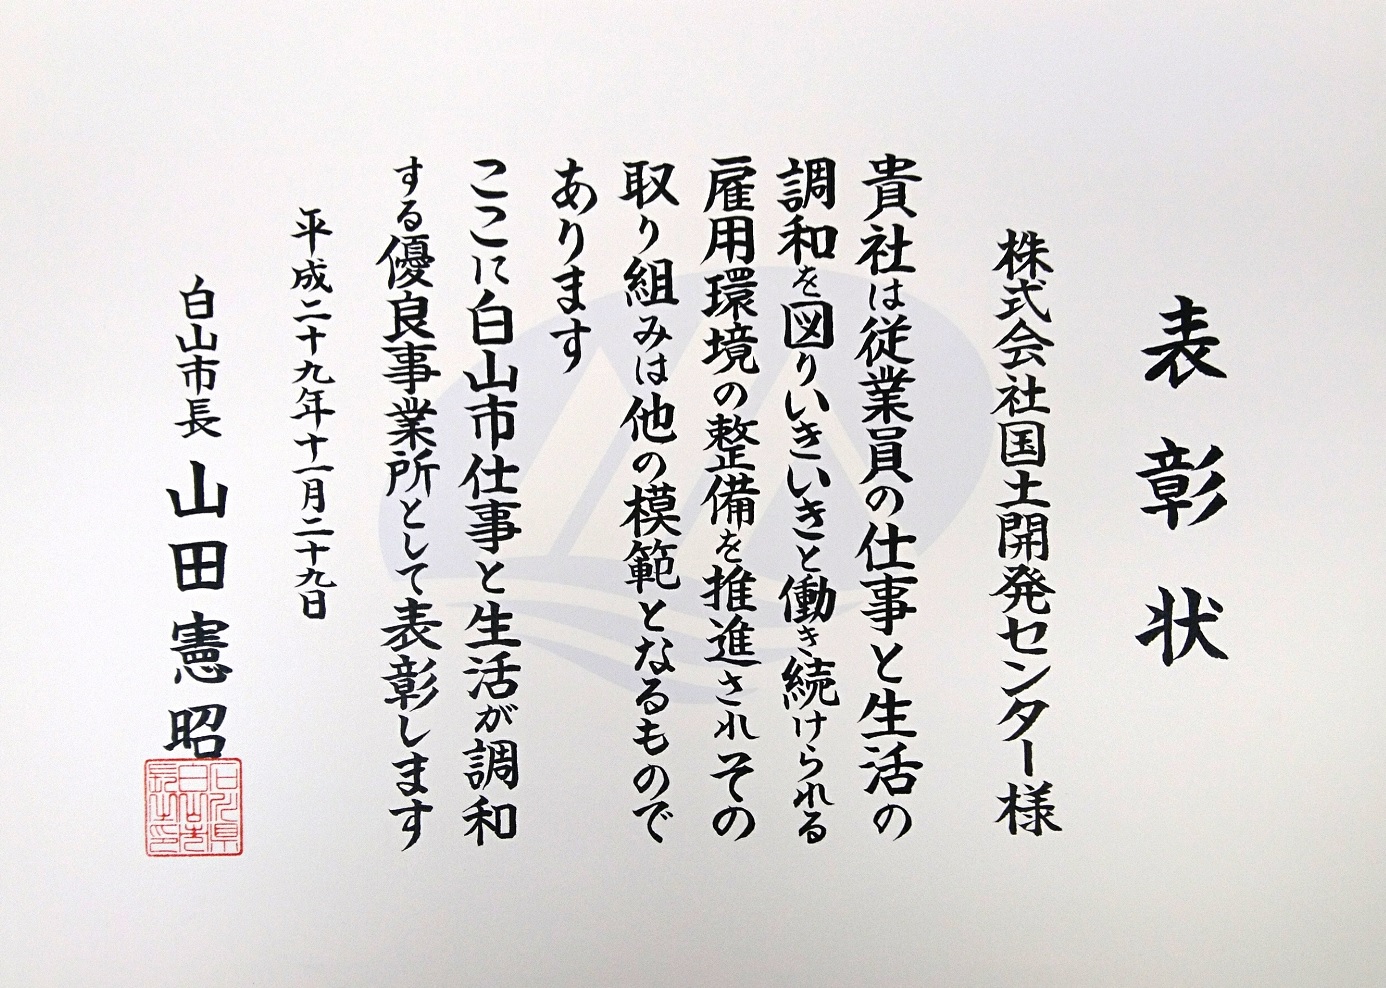 表彰状
株式会社国土開発センター様
貴社は従業員の仕事と生活の
調和を図りいきいきと働き続けられる
雇用環境の整備を推進されその
取り組みは他の模範となるもので
あります
ここに白山市仕事と生活が調和
する優良事業所として表彰します
平成二十九年十一月二十九日
白山市長 山田憲昭
石川県
白山市
長之印